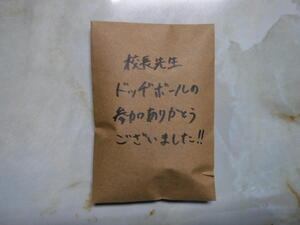 校長先生
ドッヂボールの
参加ありがとう
ございました!!